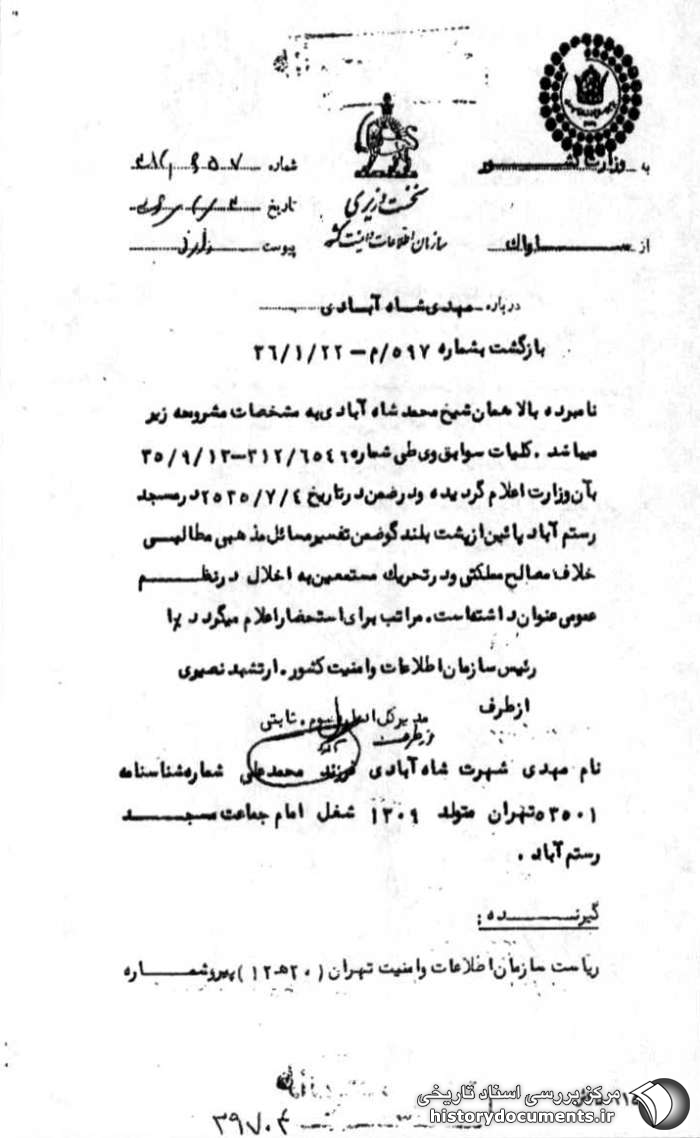 به وزارت کشور
شماره
نخست وزیری
تاریخ
سازمان اطلاعات و امنیت کشور
از ساواک
پیوست ندارد
درباره مهدی شاه آبادی
بازگشت بشماره ۵۹۷/م – ۳۶/۱/۲۲
نامبرده بالا همان شیخ محمد شاه آبادی به مشخصات مشروحه زیر
میباشد . کلیات سوابق وی طی شماره ۳۱۲/۶۵۴۶ – ۳۵/۹/۱۳
بآن وزارت اعلام گردیده و در ضمن در تاریخ ۲۵۳۵/۷/٤ در مسجد
رستم آباد پائین از پشت بلندگو ضمن تفسیر مسائل مذهبی مطالبی
خلاف مصالح مملکتی و در تحریک مستمعین به اخلال در نظم
عمومی عنوان داشته است . مراتب برای استحضار اعلام میگردد
رئیس سازمان اطلاعات و امنیت کشور . ارتشبد نصیری
از طرف
مدیر کل اداره سوم . ثابتی
از طرف
نام مهدی شهرت شاه آبادی فرزند محمدعلی شماره شناسنامه
۵۳۵۰۱ تهران متولد ۱۳۰۹ شغل امام جماعت مسجد
رستم آباد .
گیرنده :
ریاست سازمان اطلاعات و امنیت تهران ( ۲۰ هـ ۱۲ ) پیرو شماره
۳۹۷۰۴
مرکز بررسی اسناد تاریخی
historydocuments.ir